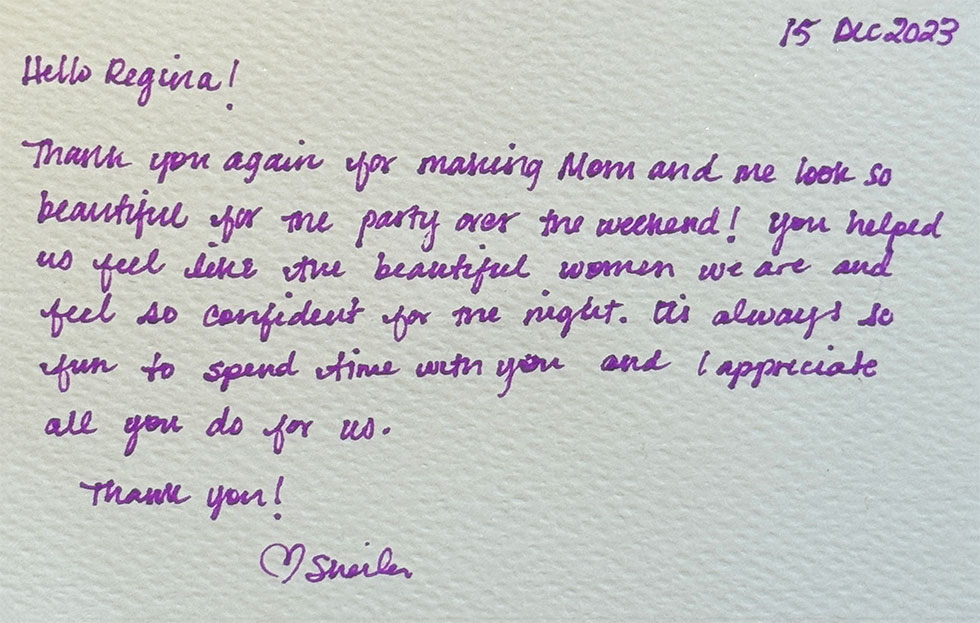 15 Dec 2023
Hello Regina!
Thank you again for making Mom and me look so
beautiful for the party over the weekend! You helped
us feel like the beautiful women we are and
feel so confident for the night. It's always so
fun to spend time with you and I appreciate
all you do for us.
Thank you!
♡ Sheila